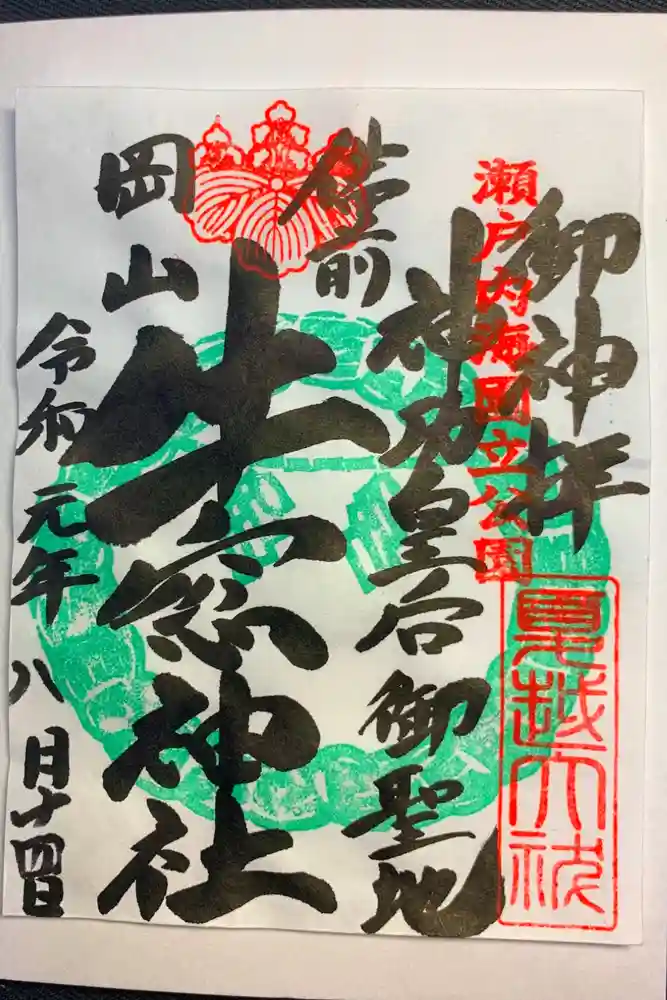 御神拝
夏越大祓
瀬戸内海國立公園
備前
神功皇后御聖地
岡山
牛窓神社
令和元年八月十四日